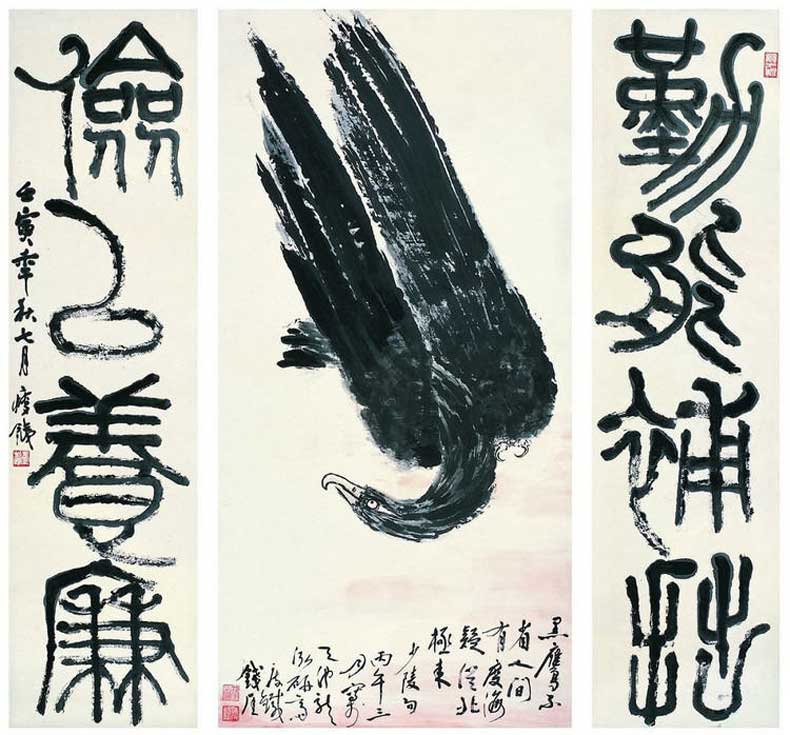 勤能補拙
黑鷹不
省人間
有度海
疑從北
極來
少陵句
丙午三
月寫
瘦鐵
錢厓
儉以養廉
壬寅年秋七月瘦鐵